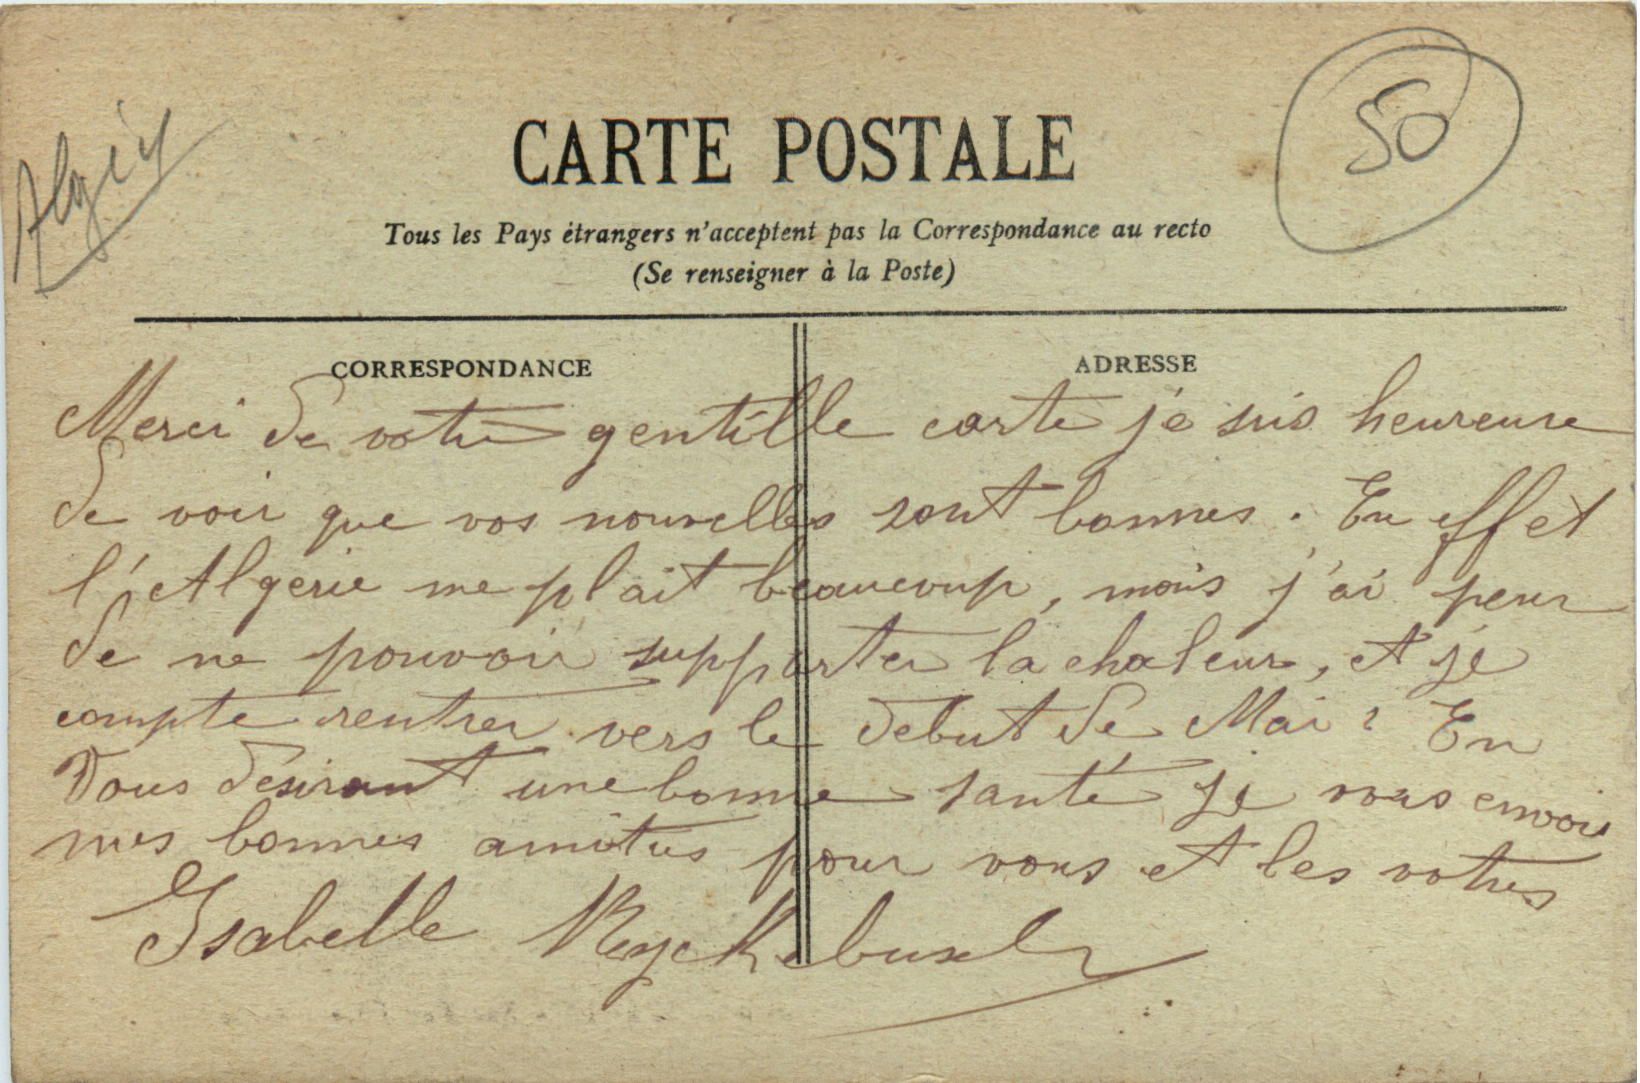 Algérie
50
CARTE POSTALE
Tous les Pays étrangers n'acceptent pas la Correspondance au recto
(Se renseigner à la Poste)
CORRESPONDANCE
ADRESSE
Merci de votre gentille carte je suis heureuse
de voir que vos nouvelles sont bonnes. En effet
l'Algerie me plait beaucoup, mais j'ai peur
de ne pouvoir supporter la chaleur, et je
compte rentrer vers le debut de Mai. En
Vous désirant une bonne santé je vous envoie
mes bonnes amitiés pour vous et les votres
Isabelle Ryckebusch